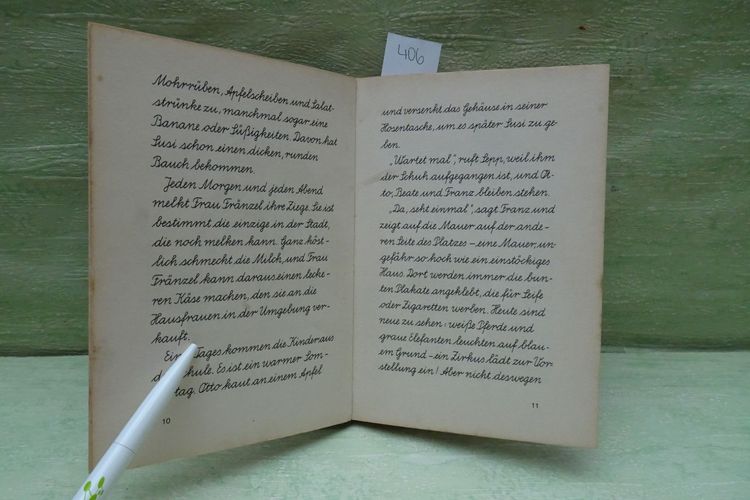 406
Mohrrüben, Apfelscheiben und Salat-
strünke zu, manchmal sogar eine
Banane oder Süßigkeiten. Davon hat
Susi schon einen dicken, runden
Bauch bekommen.
Jeden Morgen und jeden Abend
melkt Frau Fränzel ihre Ziege. Sie ist
bestimmt die einzige in der Stadt,
die noch melken kann. Ganz köst-
lich schmeckt die Milch, und Frau
Fränzel kann daraus einen lecke-
ren Käse machen, den sie an die
Hausfrauen in der Umgebung ver-
kauft.
Tages kommen die Kinder aus
Es ist ein warmer Som-
tag. Otto kaut an einem Apfel
10
und versenkt das Gehäuse in seiner
Hosentasche, um es später Susi zu ge-
ben.
„Wartet mal", ruft Sepp, weil ihm
der Schuh aufgegangen ist, und Ot-
to, Beate und Franz bleiben stehen.
„Da, seht einmal", sagt Franz und
zeigt auf die Mauer auf der ande-
ren Seite des Platzes – eine Mauer, un-
gefähr so hoch wie ein einstöckiges
Haus. Dort werden immer die bun-
ten Plakate angeklebt, die für Seife
oder Zigaretten werben. Heute sind
neue zu sehen: weiße Pferde und
graue Elefanten leuchten auf blau-
em Grund – ein Zirkus lädt zur Vor-
stellung ein! Aber nicht deswegen
11